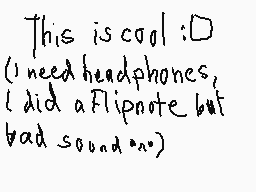 This is cool :D
(I need headphones,
I did a Flipnote but
bad sound "n")